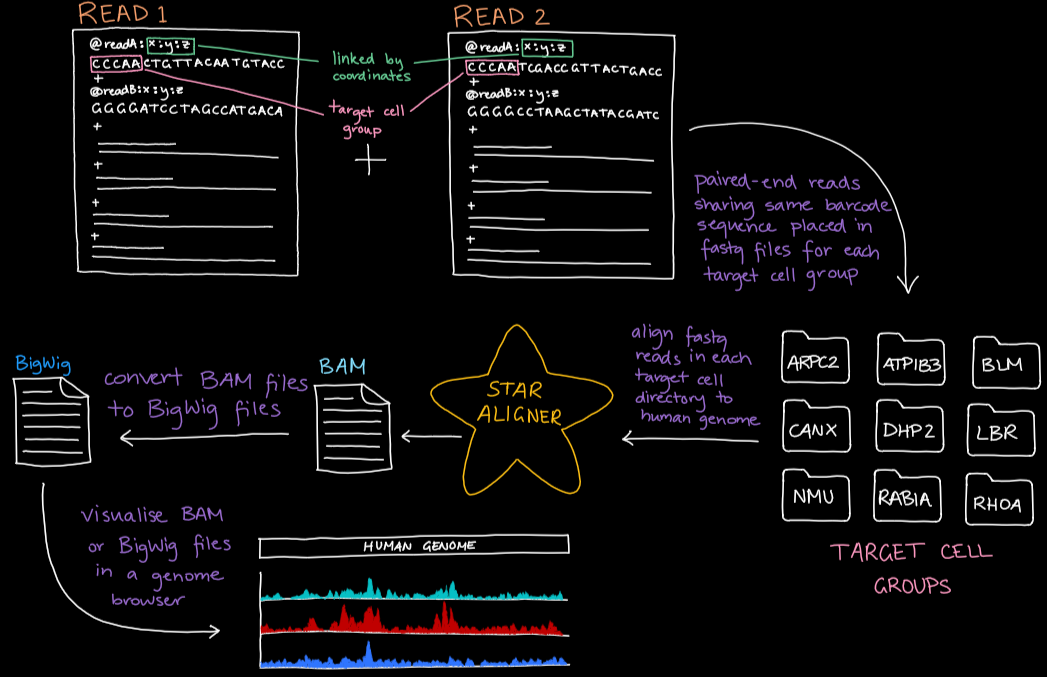 READ 1
@readA:x:y:z
CCCAACTGTTACAATGTACC
+
@readB:x:y:z
GGGGATCCTAGCCATGACA
+
+
+
+
linked by
coordinates
target cell
group
+
READ 2
@readA:x:y:z
CCCAATCGACCGTTACTGACC
+
@readB:x:y:z
GGGGCCTAAGCTATACGATC
+
+
+
+
paired-end reads
sharing same barcode
sequence placed in
fastq files for each
target cell group
ARPC2
ATP1B3
BLM
CANX
DHP2
LBR
NMU
RAB1A
RHOA
TARGET CELL
GROUPS
align fastq
reads in each
target cell
directory to
human genome
STAR
ALIGNER
BAM
convert BAM files
to BigWig files
BigWig
visualise BAM
or BigWig files
in a genome
browser
HUMAN GENOME